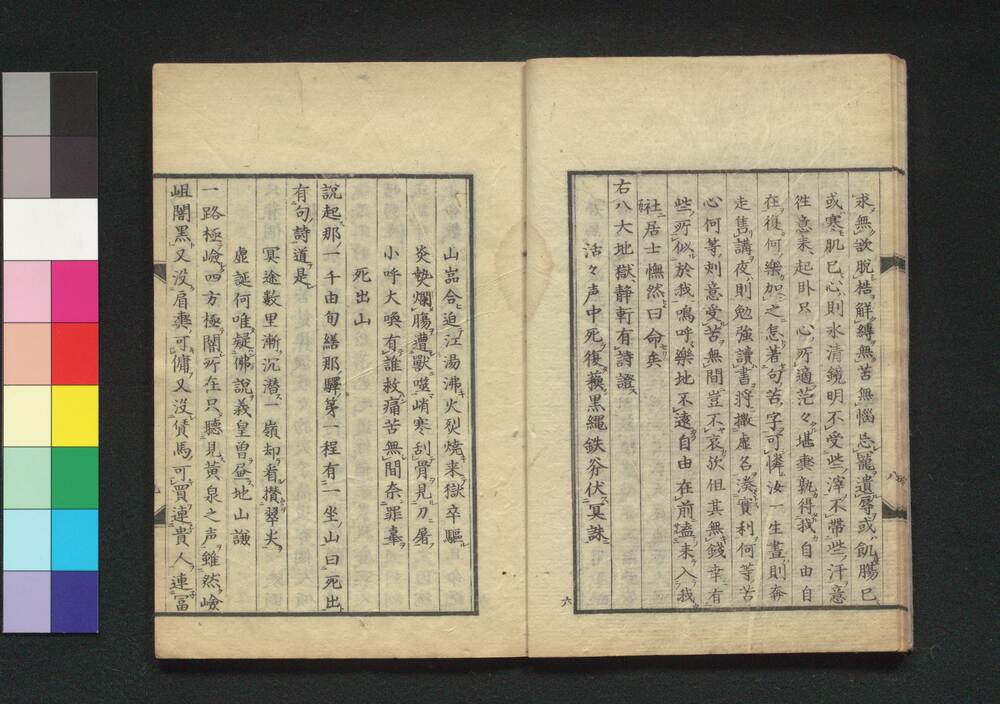 求無欲脱梏解縛無苦無惱忘寵遺辱或飢腸已
或寒肌已心則水清鏡明不受些滓不帯些汗意
徃意来起卧只心所適茫々堪輿孰得我自由自
在復何樂加之怎着句苦字可憐汝一生晝則奔
走售講夜則勉強讀書將撒虚名湊實利何等苦
心何等刺意受苦無間豈不哀欤但其無錢幸有
些所似於我嗚呼樂地不遠自由在前溘来入我
社居士憮然曰命矣
右八大地獄静軒有詩證
活々声中死復蘓黒縄鉄斧伏冥誅
六
山嵓合迫江湯沸火烈焼来獄卒驅
炎埶爛腸遭獸啖峭寒刮骨見刀屠
小呼大喚有誰救痛苦無間奈罪辜
死出山
說起那一千由旬繕那驛第一程有一坐山曰死出
有句詩道是
冥途數里漸沉潜一嶺却看攅翠尖
虚誕何唯凝佛說義皇曾𦀚地山謙
一路極嶮四方極闇所在只聴見黄泉之声雖然嶮
岨闇黒又没肩輿可傭又没賃馬可買連貴人連冨